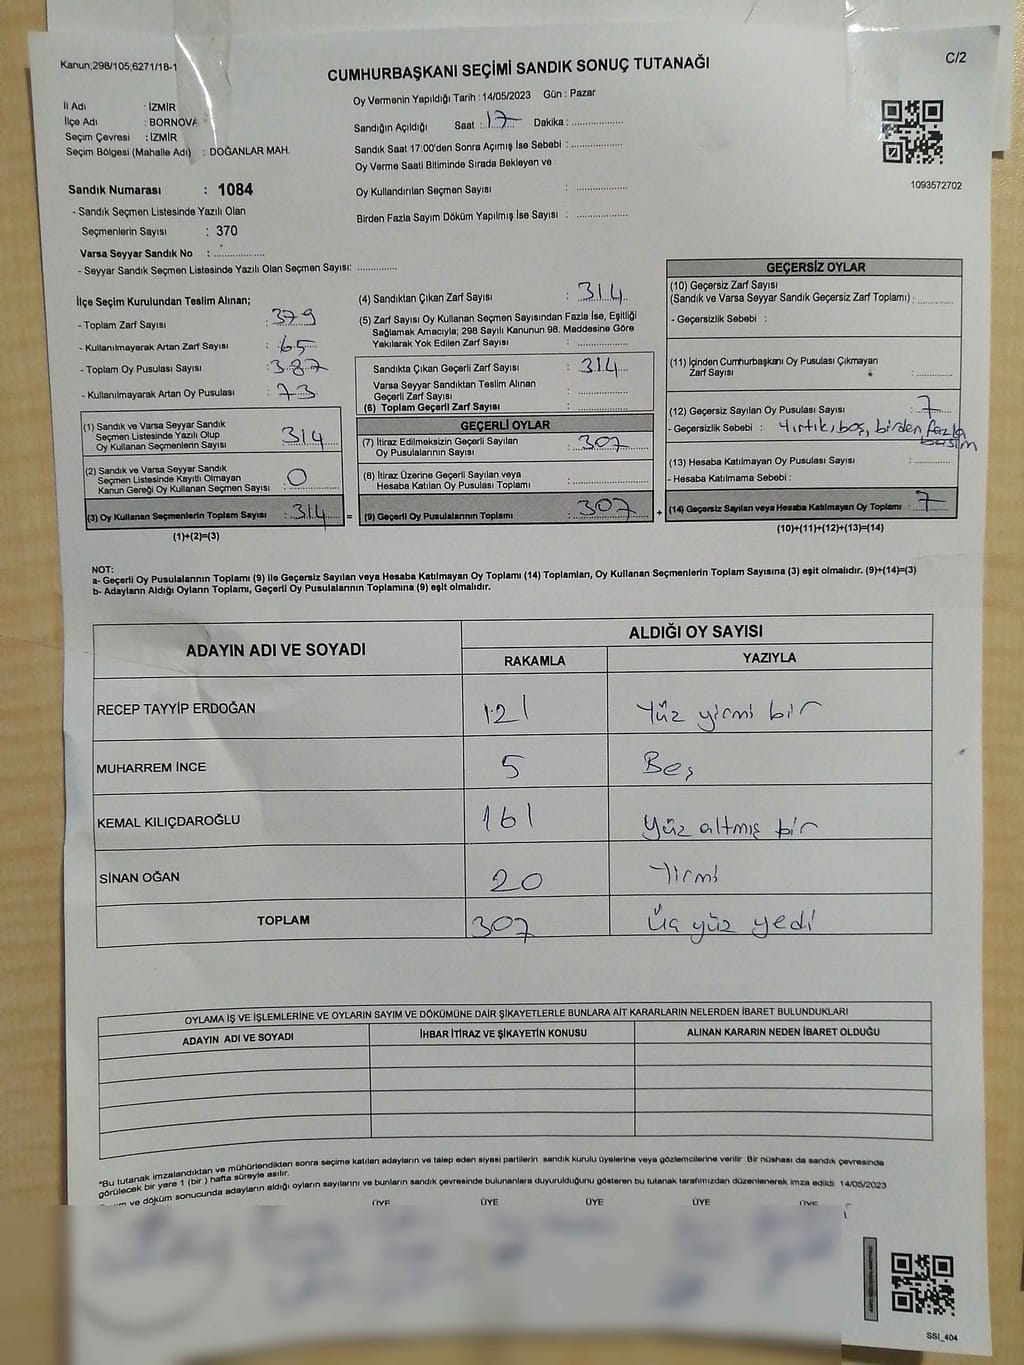 Kanun;298/105,6271/18-1
CUMHURBAŞKANI SEÇİMİ SANDIK SONUÇ TUTANAĞI
C/2
İl Adı : İZMİR
İlçe Adı : BORNOVA
Seçim Çevresi : İZMİR
Seçim Bölgesi (Mahalle Adı) : DOĞANLAR MAH.
Sandık Numarası : 1084
- Sandık Seçmen Listesinde Yazılı Olan
Seçmenlerin Sayısı : 370
Varsa Seyyar Sandık No :
- Seyyar Sandık Seçmen Listesinde Yazılı Olan Seçmen Sayısı:
Oy Vermenin Yapıldığı Tarih : 14/05/2023 Gün : Pazar
Sandığın Açıldığı Saat : 17 Dakika :
Sandık Saat 17:00'den Sonra Açımış İse Sebebi :
Oy Verme Saati Bitiminde Sırada Bekleyen ve
Oy Kullandırılan Seçmen Sayısı :
Birden Fazla Sayım Döküm Yapılmış İse Sayısı :
1093572702
İlçe Seçim Kurulundan Teslim Alınan;
- Toplam Zarf Sayısı : 379
- Kullanılmayarak Artan Zarf Sayısı : 65
- Toplam Oy Pusulası Sayısı : 387
- Kullanılmayarak Artan Oy Pusulası : 73
(1) Sandık ve Varsa Seyyar Sandık
Seçmen Listesinde Yazılı Olup
Oy Kullanan Seçmenlerin Sayısı : 314
(2) Sandık ve Varsa Seyyar Sandık
Seçmen Listesinde Kayıtlı Olmayan
Kanun Gereği Oy Kullanan Seçmen Sayısı : 0
(3) Oy Kullanan Seçmenlerin Toplam Sayısı : 314 =
(1)+(2)=(3)
(4) Sandıktan Çıkan Zarf Sayısı : 314
(5) Zarf Sayısı Oy Kullanan Seçmen Sayısından Fazla İse, Eşitliği
Sağlamak Amacıyla; 298 Sayılı Kanunun 98. Maddesine Göre
Yakılarak Yok Edilen Zarf Sayısı :
Sandıkta Çıkan Geçerli Zarf Sayısı : 314
Varsa Seyyar Sandıktan Teslim Alınan
Geçerli Zarf Sayısı :
(6) Toplam Geçerli Zarf Sayısı :
GEÇERLİ OYLAR
(7) İtiraz Edilmeksizin Geçerli Sayılan
Oy Pusulalarının Sayısı : 307
(8) İtiraz Üzerine Geçerli Sayılan veya
Hesaba Katılan Oy Pusulası Toplamı :
(9) Geçerli Oy Pusulalarının Toplamı : 307 +
GEÇERSİZ OYLAR
(10) Geçersiz Zarf Sayısı
(Sandık ve Varsa Seyyar Sandık Geçersiz Zarf Toplamı) :
- Geçersizlik Sebebi :
(11) İçinden Cumhurbaşkanı Oy Pusulası Çıkmayan
Zarf Sayısı :
(12) Geçersiz Sayılan Oy Pusulası Sayısı : 7
- Geçersizlik Sebebi : Yırtık, boş, birden fazla
basım
(13) Hesaba Katılmayan Oy Pusulası Sayısı :
- Hesaba Katılmama Sebebi :
(14) Geçersiz Sayılan veya Hesaba Katılmayan Oy Toplamı : 7
(10)+(11)+(12)+(13)=(14)
NOT:
a- Geçerli Oy Pusulalarının Toplamı (9) ile Geçersiz Sayılan veya Hesaba Katılmayan Oy Toplamı (14) Toplamları, Oy Kullanan Seçmenlerin Toplam Sayısına (3) eşit olmalıdır. (9)+(14)=(3)
b- Adayların Aldığı Oyların Toplamı, Geçerli Oy Pusulalarının Toplamına (9) eşit olmalıdır.
ADAYIN ADI VE SOYADI
ALDIĞI OY SAYISI
RAKAMLA YAZIYLA
RECEP TAYYİP ERDOĞAN 121 Yüz yirmi bir
MUHARREM İNCE 5 Beş
KEMAL KILIÇDAROĞLU 161 Yüz altmış bir
SİNAN OĞAN 20 Yirmi
TOPLAM 307 Üç yüz yedi
OYLAMA İŞ VE İŞLEMLERİNE VE OYLARIN SAYIM VE DÖKÜMÜNE DAİR ŞİKAYETLERLE BUNLARA AİT KARARLARIN NELERDEN İBARET BULUNDUKLARI
ADAYIN ADI VE SOYADI İHBAR İTİRAZ VE ŞİKAYETİN KONUSU ALINAN KARARIN NEDEN İBARET OLDUĞU
*Bu tutanak imzalandıktan ve mühürlendikten sonra seçime katılan adayların ve talep eden siyasi partilerin sandık kurulu üyelerine veya gözlemcilerine verilir. Bir nüshası da sandık çevresinde
görülecek bir yere 1 (bir ) hafta süreyle asılır.
ve döküm sonucunda adayların aldığı oyların sayılarını ve bunların sandık çevresinde bulunanlara duyurulduğunu gösteren bu tutanak tarafımızdan düzenlenerek imza edildi. 14/05/2023
ÜYE ÜYE ÜYE ÜYE ÜYE
SSI_404